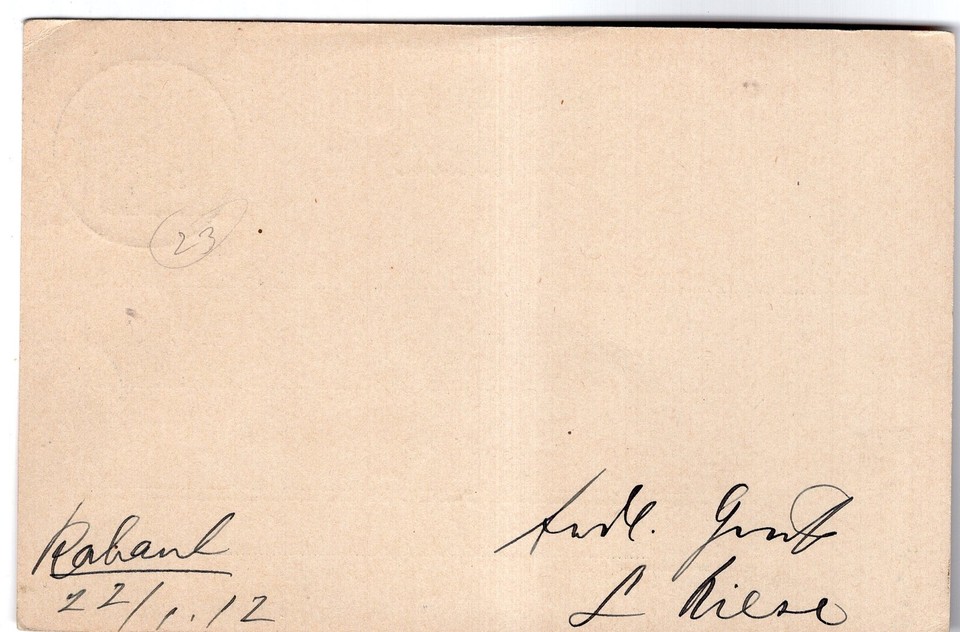 23
Rabaul
22/1.12
frdl. Gruß
L Riese